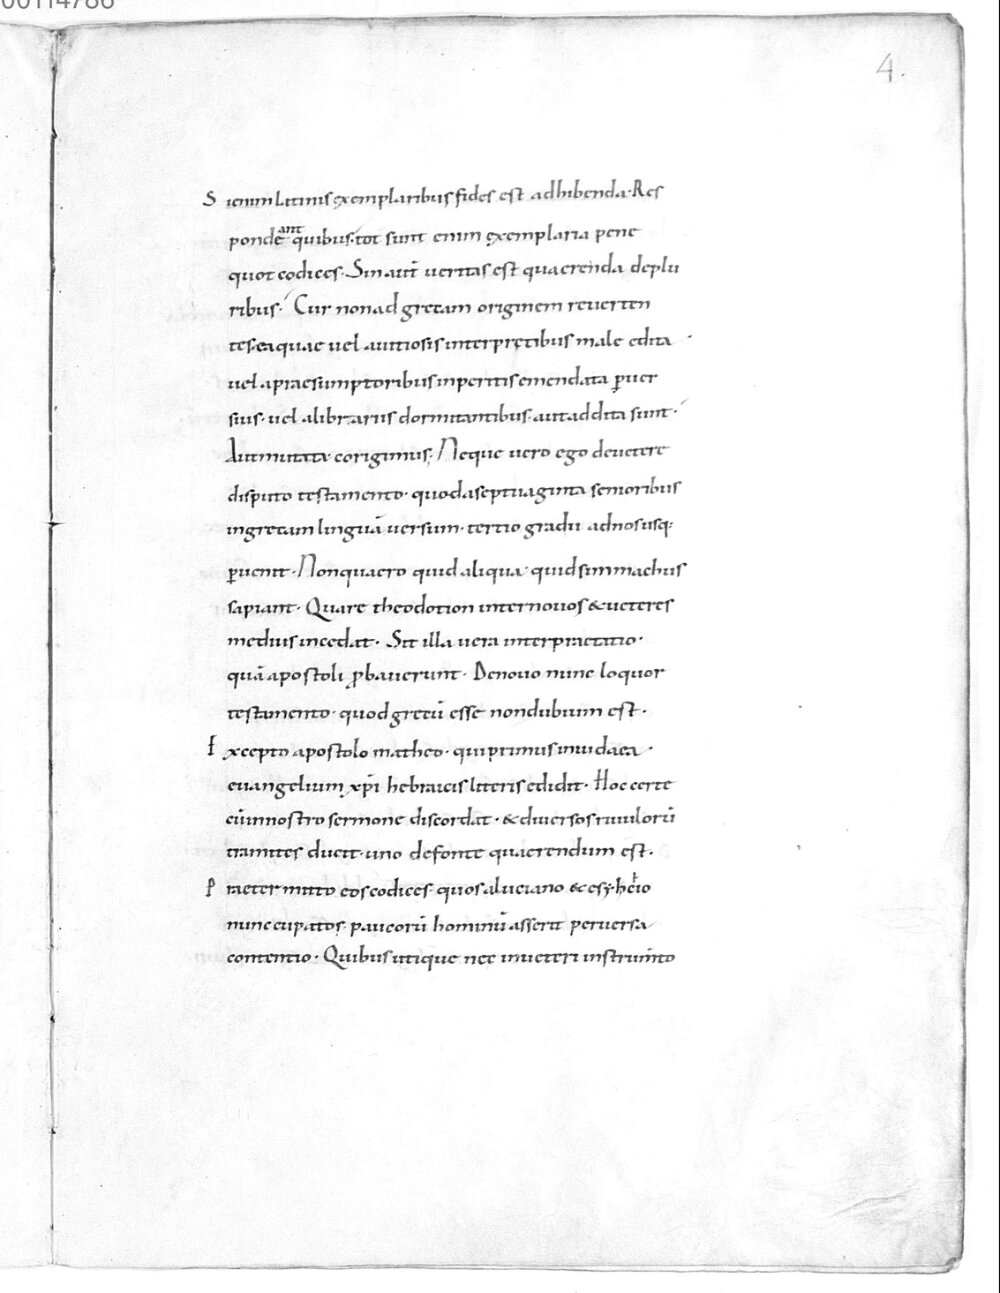 00114786
4.
Sienim latinis exemplaribus fides est adhibenda· Res
pondeant quibus· tot sunt enim exemplaria pene
quot codices· Sin aut̄ ueritas est quaerenda deplu
ribus· Cur non ad grecam originem reuerten
tes· ea quae uel auitiosis interpretibus male edita·
uel apraesumptoribus inperitis emendata ꝑuer
sius· uel alibrariis dormitantibus· aut addita sunt·
Aut mutata corigimus; Neque uero ego deuetere
disputo testamento· quod aseptuaginta senioribus
ingrecam linguā uersum· tertio gradu adnos usq:
ꝑuenit· Non quaero quid aliqua· quid simmachus
sapiant· Quare theodotion inter nouos & ueteres
medius incedat· Sit illa uera interpraetatio·
quā apostoli ꝓbauerunt· Denouo nunc loquor
testamento· quod grecū esse non dubium est·
Excepto apostolo matheo· qui primus iniudaea·
euangelium xp̄i hebraicis litteris edidit· Hoc certe
cū innostro sermone discordat· & diuersos riuulorū
tramites ducit· uno defonte quaerendum est·
Praetermitto eos codices· quos aluciano & esycheio
nuncupatos· paucorū hominū asserit peruersa
contentio· Quibus utique nec inueteri instrum̄to